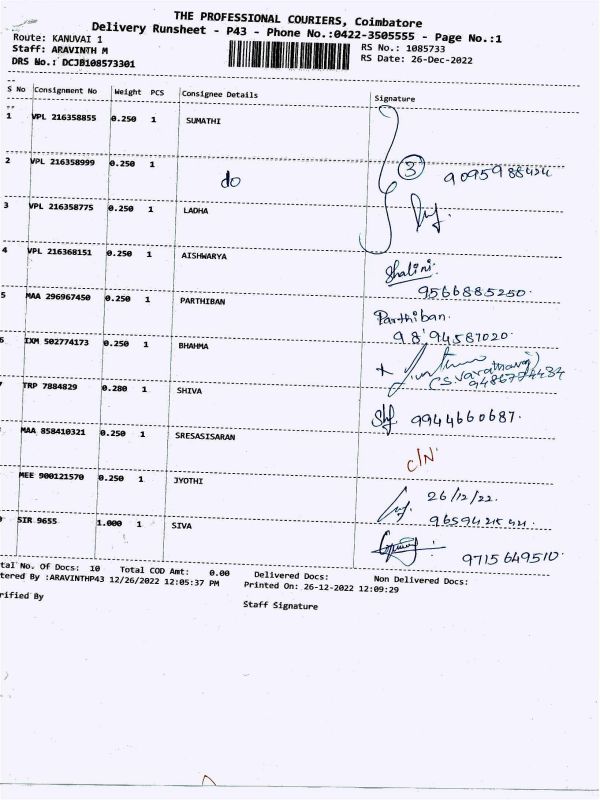 THE PROFESSIONAL COURIERS, Coimbatore
Delivery Runsheet - P43 - Phone No.:0422-3505555 - Page No.:1
Route: KANUVAI 1
RS No.: 1085733
Staff: ARAVINTH M
RS Date: 26-Dec-2022
DRS No.: DCJB108573301
S No Consignment No Weight PCS Consignee Details Signature
1 VPL 216358855 0.250 1 SUMATHI
2 VPL 216358999 0.250 1 do 3
3 VPL 216358775 0.250 1 LADHA
4 VPL 216368151 0.250 1 AISHWARYA Shalini.
9566885250.
5 MAA 296967450 0.250 1 PARTHIBAN Parthiban.
9894587020.
6 IXM 502774173 0.250 1 BHAHMA
7 TRP 7884829 0.280 1 SHIVA 9944660687.
MAA 858410321 0.250 1 SRESASISARAN C/N
MEE 900121570 0.250 1 JYOTHI 26/12/22.
SIR 9655 1.000 1 SIVA
9715649510.
tal No. Of Docs: 10 Total COD Amt: 0.00 Delivered Docs: Non Delivered Docs:
tered By :ARAVINTHP43 12/26/2022 12:05:37 PM Printed On: 26-12-2022 12:09:29
rified By
Staff Signature